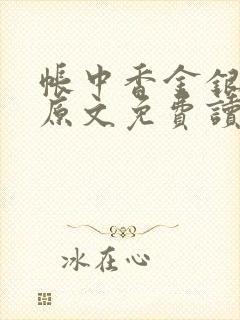 帳中香金銀
原文免費讀
冰在心